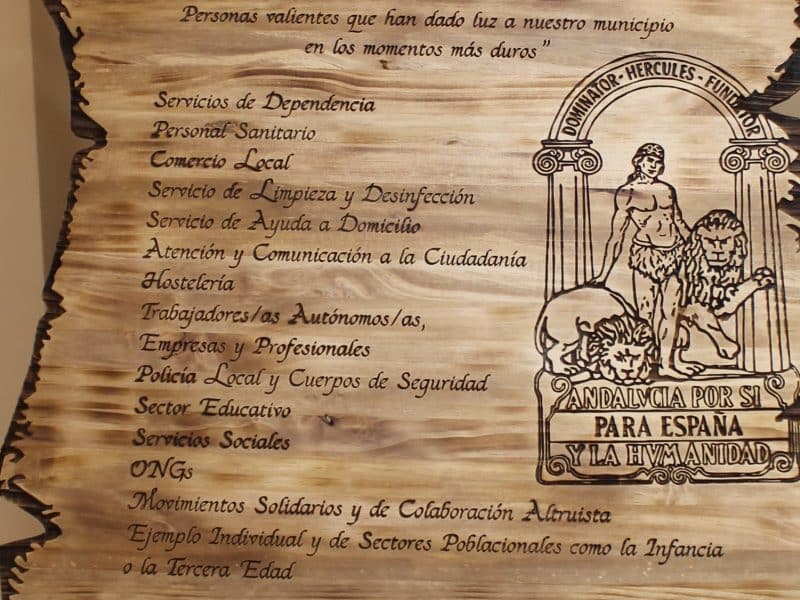 Personas valientes que han dado luz a nuestro municipio
en los momentos más duros"
Servicios de Dependencia
Personal Sanitario
Comercio Local
Servicio de Limpieza y Desinfección
Servicio de Ayuda a Domicilio
Atención y Comunicación a la Ciudadanía
Hostelería
Trabajadores/as Autónomos/as,
Empresas y Profesionales
Policía Local y Cuerpos de Seguridad
Sector Educativo
Servicios Sociales
ONGs
Movimientos Solidarios y de Colaboración Altruista
Ejemplo Individual y de Sectores Poblacionales como la Infancia
o la Tercera Edad
DOMINATOR-HERCULES-FUNDATOR
ANDALVCIA POR SI
PARA ESPAÑA
Y LA HVMANIDAD